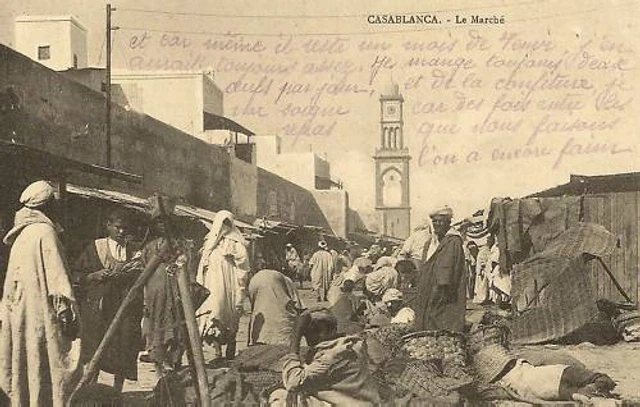 CASABLANCA. - Le Marché
et car même il reste un mois de j'en
aurait toujours assez. Je mange toujours deux
œufs par jour, et de la confiture je
un car des fois entre les
repas que nous faisons
l'on a encore faim